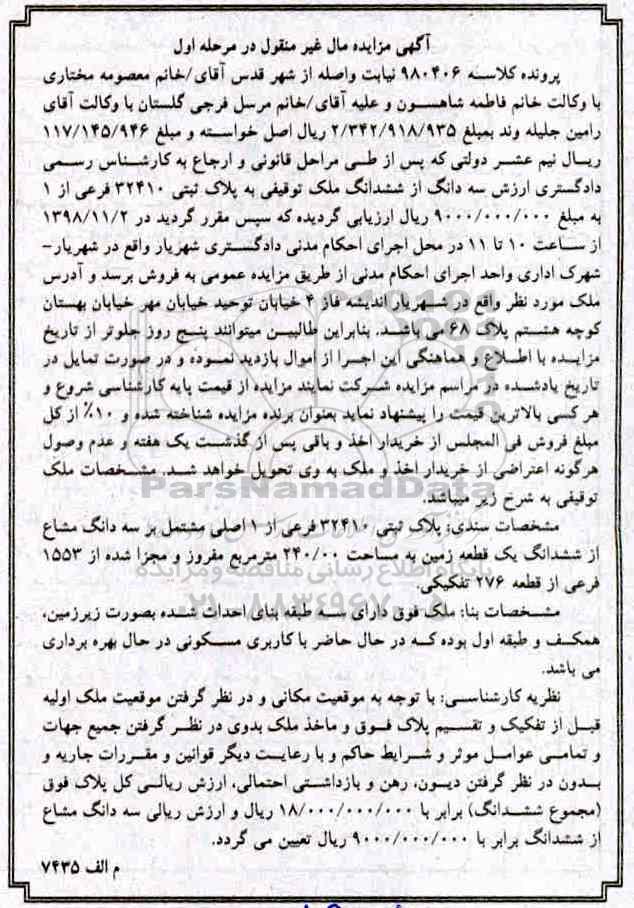 آگهی مزایده مال غیر منقول در مرحله اول
پرونده کلاسه ۹۸۰۴۰۶ نیابت واصله از شهر قدس آقای/خانم معصومه مختاری
با وکالت خانم فاطمه شاهسون و علیه آقای/خانم مرسل فرجی گلستان با وکالت آقای
رامین جلیله وند بمبلغ ۲/۳۴۲/۹۱۸/۹۳۵ ریال اصل خواسته و مبلغ ۱۱۷/۱۴۵/۹۴۶
ریال نیم عشر دولتی که پس از طی مراحل قانونی و ارجاع به کارشناس رسمی
دادگستری ارزش سه دانگ از ششدانگ ملک توقیفی به پلاک ثبتی ۳۲۴۱۰ فرعی از ۱
به مبلغ ۹۰۰۰/۰۰۰/۰۰۰ ریال ارزیابی گردیده که سپس مقرر گردید در ۱۳۹۸/۱۱/۲
از ساعت ۱۰ تا ۱۱ در محل اجرای احکام مدنی دادگستری شهریار واقع در شهریار-
شهرک اداری واحد اجرای احکام مدنی از طریق مزایده عمومی به فروش برسد و آدرس
ملک مورد نظر واقع در شهریار اندیشه فاز ۴ خیابان توحید خیابان مهر خیابان بهستان
کوچه هشتم پلاک ۶۸ می باشد. بنابراین طالبین میتوانند پنج روز جلوتر از تاریخ
مزایده با اطلاع و هماهنگی این اجرا از اموال بازدید نموده و در صورت تمایل در
تاریخ یادشده در مراسم مزایده شرکت نمایند مزایده از قیمت پایه کارشناسی شروع و
هر کسی بالاترین قیمت را پیشنهاد نماید بعنوان برنده مزایده شناخته شده و ۱۰٪ از کل
مبلغ فروش فی المجلس از خریدار اخذ و باقی پس از گذشت یک هفته و عدم وصول
هرگونه اعتراضی از خریدار اخذ و ملک به وی تحویل خواهد شد. مشخصات ملک
توقیفی به شرح زیر میباشد.
ParsNamadData
مشخصات سندی: پلاک ثبتی ۳۲۴۱۰ فرعی از ۱ اصلی مشتمل بر سه دانگ مشاع
از ششدانگ یک قطعه زمین به مساحت ۲۴۰/۰۰ مترمربع مفروز و مجزا شده از ۱۵۵۳
فرعی از قطعه ۲۷۶ تفکیکی.
پایگاه اطلاع رسانی مناقصه و مزایده
۰۲۱-۸۸۳۴۹۶۷۰-۵
مشخصات بنا: ملک فوق دارای سه طبقه بنای احداث شده بصورت زیرزمین،
همکف و طبقه اول بوده که در حال حاضر با کاربری مسکونی در حال بهره برداری
می باشد.
نظریه کارشناسی: با توجه به موقعیت مکانی و در نظر گرفتن موقعیت ملک اولیه
قبل از تفکیک و تقسیم پلاک فوق و ماخذ ملک بدوی در نظر گرفتن جمیع جهات
و تمامی عوامل موثر و شرایط حاکم و با رعایت دیگر قوانین و مقررات جاریه و
بدون در نظر گرفتن دیون، رهن و بازداشتی احتمالی، ارزش ریالی کل پلاک فوق
(مجموع ششدانگ) برابر با ۱۸/۰۰۰/۰۰۰/۰۰۰ ریال و ارزش ریالی سه دانگ مشاع
از ششدانگ برابر با ۹۰۰۰/۰۰۰/۰۰۰ ریال تعیین می گردد.
م الف ۷۴۳۵